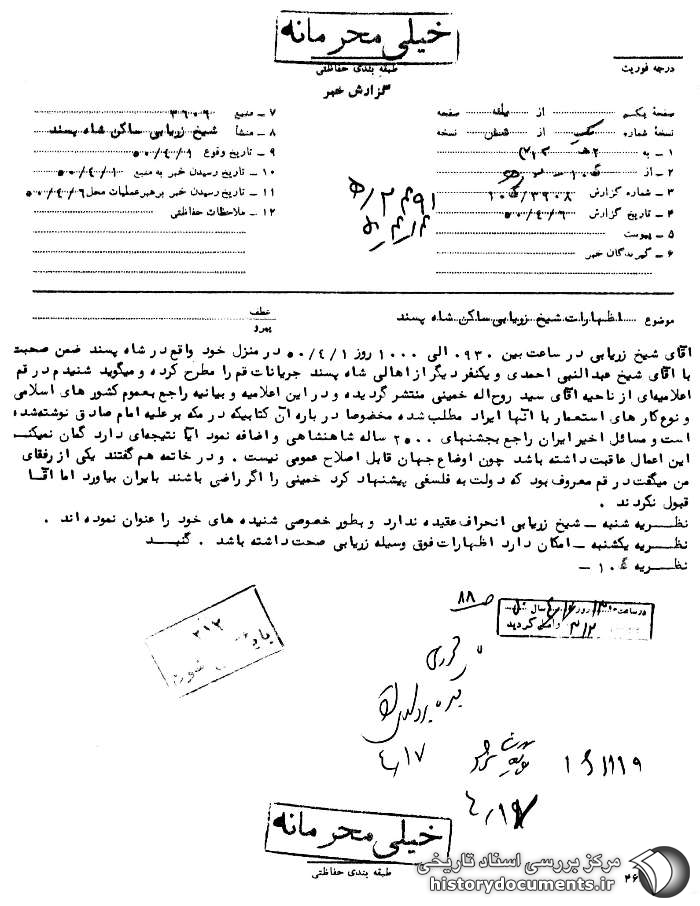 خیلی محرمانه
طبقه بندی حفاظتی
درجه فوریت
گزارش خبر
صفحهٔ یکم از صفحه
نسخهٔ شماره یکم از نسخه
۱ ـ به ۳۱۲
۲ ـ از
۳ ـ شماره گزارش ۳۹۰۸/۱۰
۴ ـ تاریخ گزارش ۵۰/۴/۶
۵ ـ پیوست
۶ ـ گیرندگان خبر
۷ ـ منبع ۳۶۰۶
۸ ـ منشأ شیخ زریابی ساکن شاه پسند
۹ ـ تاریخ وقوع ۵۰/۴/۱
۱۰ ـ تاریخ رسیدن خبر به منبع ۵۰/۴/۱
۱۱ ـ تاریخ رسیدن خبر برهبر عملیات محل ۵۰/۴/۶
۱۲ ـ ملاحظات حفاظتی
موضوع اظهارات شیخ زریابی ساکن شاه پسند
عطف
پیرو
آقای شیخ زریابی در ساعت بین ۰۹۳۰ الی ۱۰۰۰ روز ۵۰/۴/۱ در منزل خود واقع در شاه پسند ضمن صحبت
با آقای شیخ عبدالنبی احمدی و یکنفر دیگر از اهالی شاه پسند جریانات قم را مطرح کرده و میگوید شنیدم در قم
اعلامیه‌ای از ناحیه آقای سید روح‌اله خمینی منتشر گردیده و در این اعلامیه و بیانیه راجع بعموم کشور های اسلامی
و نوع کار های استعمار با آنها ایراد مطلب شده مخصوصا در باره آن کتابیکه در مکه بر علیه امام صادق نوشته شده
است و مسائل اخیر ایران راجع بجشنهای ۲۵۰۰ ساله شاهنشاهی و اضافه نمود آیا نتیجه‌ای دارد گمان نمیکنم
این اعمال عاقبت داشته باشد چون اوضاع جهان قابل اصلاح عمومی نیست . و در خاتمه هم گفتند یکی از رفقای
من میگفت در قم معروف بود که دولت به فلسفی پیشنهاد کرد خمینی را اگر راضی باشند بایران بیاورد اما آقا
قبول نکردند .
نظریه شنبه ـ شیخ زریابی انحراف عقیده ندارد و بطور خصوصی شنیده های خود را عنوان نموده اند .
نظریه یکشنبه ـ امکان دارد اظهارات فوق وسیله زریابی صحت داشته باشد . گنبد
نظریه ۱۰ ـ
۸۸
در ساعت روز سال
۳۱۲ واصل گردید
۳۱۲
۴/۱۷
خیلی محرمانه
طبقه بندی حفاظتی
مرکز بررسی اسناد تاریخی
historydocuments.ir